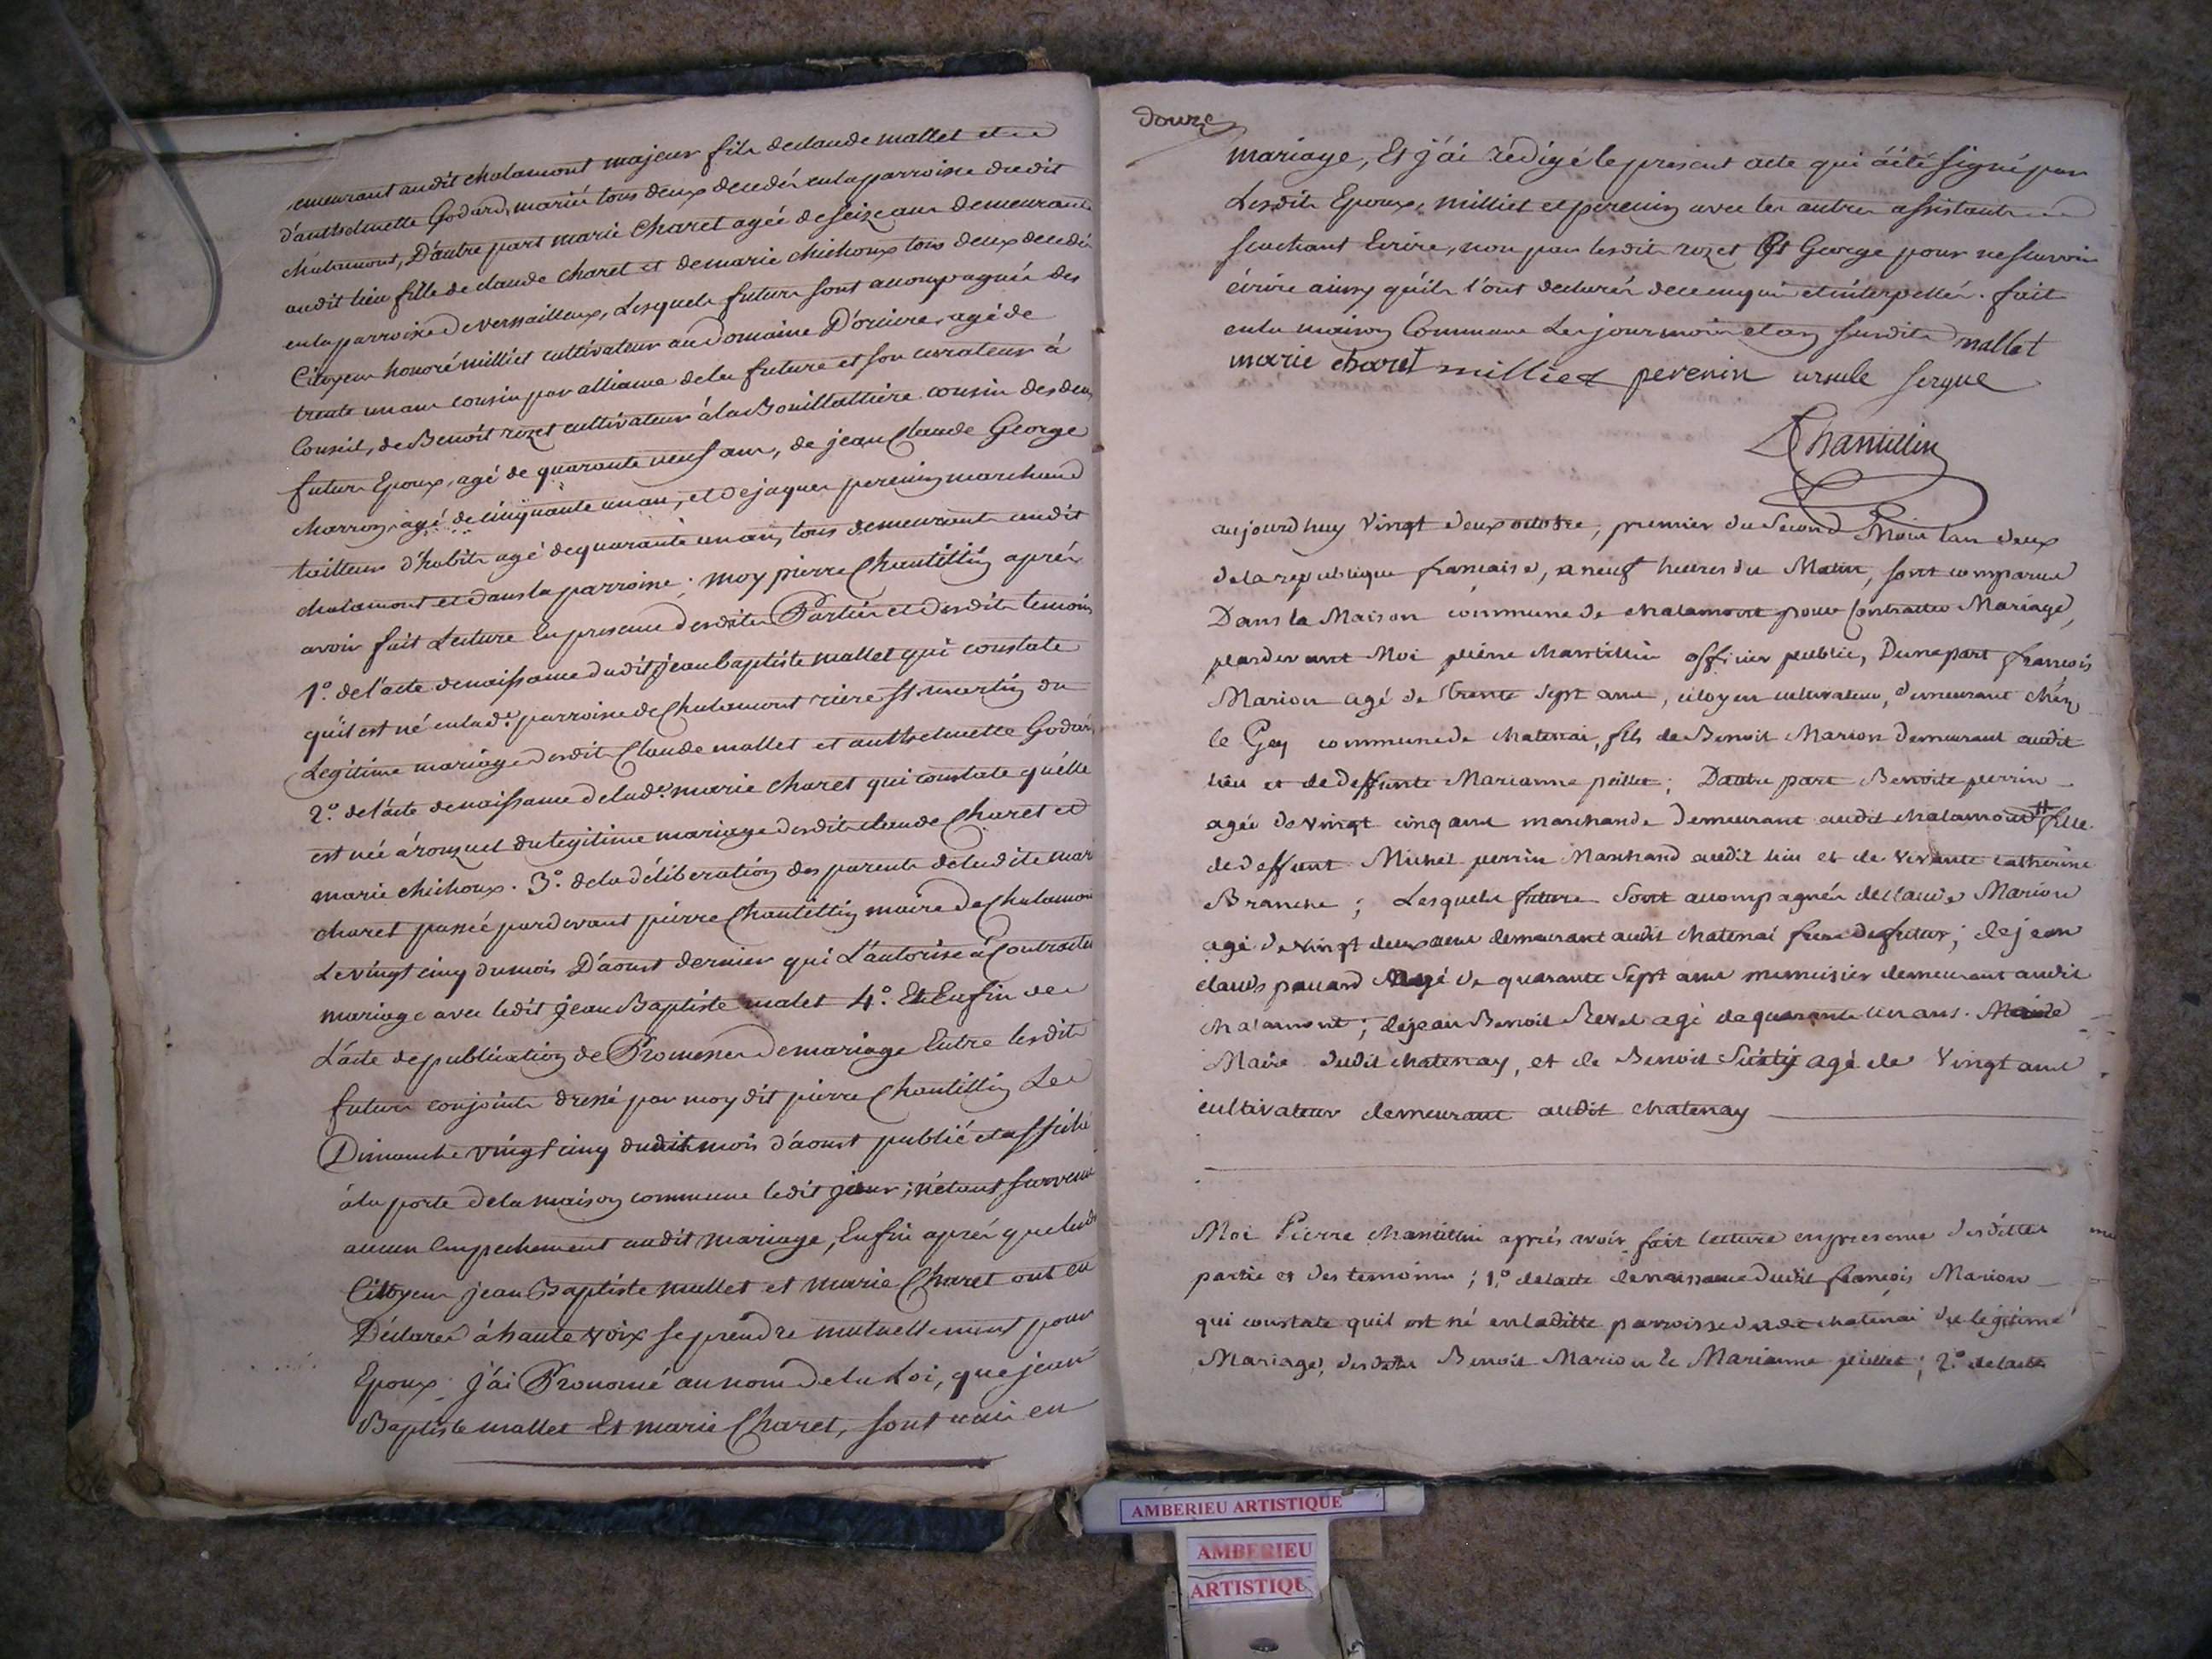 emeurant audit chalamont majeur fils declaude mallet et de
d'anthelmette Godard, mariés tous deux decedés enla parroisse dudit
chalamont, D'autre part marie Charet agée deseize ans demeurante
audit lieu fille de claude charet et demarie chichoux tous deux decedés
enla parroisse de versailleux, Lesquels futurs sont accompagnés des
Citoyens honoré milliet cultivateur au Domaine D'orcière, agé de
trente un ans cousin par alliance dela future et son curateur à
Conseil, de Benoit rozet cultivateur àla Bouillattière cousin des deux
futurs Epoux, agé de quarante neuf ans, de jean Claude George
charron, agé de cinquante un an, et de jaques perenin marchand
tailleur d'habits agé dequarante un an, tous demeurants audit
chalamont et dans la parroisse; moy pierre Chantillin après
avoir fait Lecture En presence desdites Parties et desdits temoins
1º. de l'acte denaissance dudit jean baptiste mallet qui constate
qu'il est né enlade. parroisse de Chalamont rière st martin du
Legitime mariage desdits Claude mallet et anthelmette Godard
2º. del'acte denaissance delade. marie charet qui constate qu'elle
est née à ronzuel du legitime mariage desdits claude Charet et
marie chichoux. 3º. dela déliberation des parents deladite marie
charet passée pardevant pierre Chantillin maire de Chalamont
Le vingt cinq dumois D'aoust dernier qui L'autorise à Contracter
mariage avec ledit jean Baptiste malet 4º. Et Enfin de
L'acte depublication de Promesses demariage Entre lesdits
futurs conjoints dressé par moy dit pierre Chantillin Le
Dimanche vingt cinq dudit mois d'aoust publié et affiché
àla porte dela maison commune ledit jour; n'étant survenu
aucun Empechement audit mariage, Enfin après que lesdits
Citoyens jean Baptiste mallet et marie Charet ont eu
Déclaré à haute voix se prendre mutuellement pour
Epoux; j'ai Prononcé aunom dela Loi, que jean-
Baptiste mallet Et marie Charet, sont unis en
douze
mariage, Et j'ai redigé lepresent acte qui àété signé par
Lesdits Epoux, milliet et perenin avec les autres assistants
sachant Ecrire, non par lesdits rozet Et George pour ne sçavoir
écrire ainsy qu'ils l'ont declarés de ce enquis et interpellés. fait
enla maison Commune Les jour mois et an susdits mallet
marie charet milliet perenin ursule sergue
Chantillin
aujourdhuy vingt deux octobre, premier du Second Mois lan deux
dela republique francaise, aneuf heures du Matin, sont comparus
Dans la Maison commune de chalamont pour Contracter Mariage,
pardevant Moi pierre chantillin officier public, Dune part francois
Marion agé de trente sept ans, citoyen cultivateur, demeurant chéz
le Gey commune de chatenai, fils de Benoit Marion demeurant audit
lieu et de deffunte Marianne peillet; Dautre part Benoite perrin
agée de vingt cinq ans marchande Demeurant audit chalamont # fille
dedeffunt Michel perrin Marchand audit lieu et de vivante catherine
Branche; Lesquels futurs sont accompagnés declaude Marion
agé de vingt deux ans demeurant audit chatenai frere du futur; de jean
claude pauard agé de quarante sept ans menuisier demeurant audit
chalamont; dejean Benoit Revel agé dequarante un ans.
Maire dudit chatenay, et de Benoit agé de vingt ans
cultivateur demeurant audit chatenay
Moi Pierre chantillin aprés avoir fait lecture en presence desdittes
partie et des temoins; 1º. delacte denaissance dudit francois Marion
qui constate quil est né enladitte parroisse dudit chatenai du légitime
Mariage, desdits Benoit Marion Et Marianne peillet; 2º delacte
AMBERIEU ARTISTIQUE
AMBERIEU
ARTISTIQUE